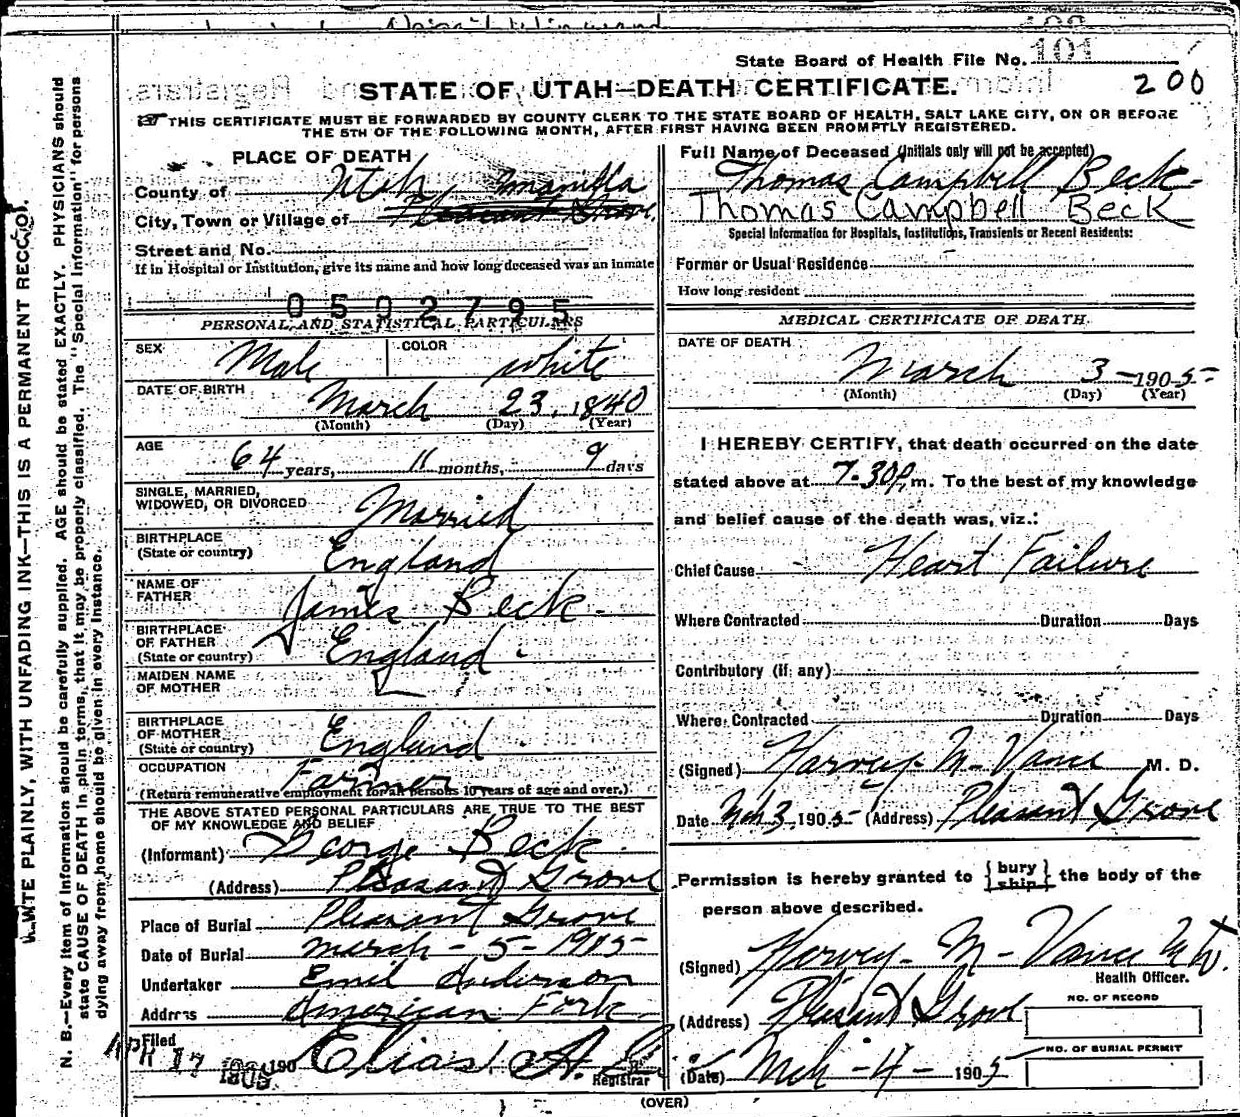 State Board of Health File No. 101
200
STATE OF UTAH—DEATH CERTIFICATE.
THIS CERTIFICATE MUST BE FORWARDED BY COUNTY CLERK TO THE STATE BOARD OF HEALTH, SALT LAKE CITY, ON OR BEFORE
THE 5TH OF THE FOLLOWING MONTH, AFTER FIRST HAVING BEEN PROMPTLY REGISTERED.
PLACE OF DEATH
County of Utah, Manilla
City, Town or Village of Pleasant Grove
Street and No.
If in Hospital or Institution, give its name and how long deceased was an inmate
0592795
PERSONAL AND STATISTICAL PARTICULARS
SEX Male COLOR white
DATE OF BIRTH March 23, 1840
(Month) (Day) (Year)
AGE
64 years, 11 months, 9 days
SINGLE, MARRIED,
WIDOWED, OR DIVORCED Married
BIRTHPLACE
(State or country) England
NAME OF
FATHER James Beck -
BIRTHPLACE
OF FATHER
(State or country) England -
MAIDEN NAME
OF MOTHER
BIRTHPLACE
OF MOTHER
(State or country) England
OCCUPATION Farmer
(Return remunerative employment for all persons 10 years of age and over.)
THE ABOVE STATED PERSONAL PARTICULARS ARE TRUE TO THE BEST
OF MY KNOWLEDGE AND BELIEF
(Informant) George Beck
(Address) Pleasant Grove
Place of Burial Pleasant Grove
Date of Burial March - 5 - 1905
Undertaker Emil Anderson
Address American Fork
Filed
APR 17 1905 190 Elias A.
Registrar
Full Name of Deceased (Initials only will not be accepted)
Thomas Campbell Beck -
Thomas Campbell Beck
Special Information for Hospitals, Institutions, Transients or Recent Residents:
Former or Usual Residence
How long resident
MEDICAL CERTIFICATE OF DEATH.
DATE OF DEATH
March 3 - 1905
(Month) (Day) (Year)
I HEREBY CERTIFY, that death occurred on the date
stated above at 7.30 p. m. To the best of my knowledge
and belief cause of the death was, viz.:
Chief Cause Heart Failure
Where Contracted Duration Days
Contributory (if any)
Where Contracted Duration Days
(Signed) Harvey M Vance M. D.
Date Mch 3, 1905 (Address) Pleasant Grove
Permission is hereby granted to {bury ship} the body of the
person above described.
(Signed) Harvey - M - Vance M D.
Health Officer.
(Address) Pleasant Grove
NO. OF RECORD
(Date) Mch - 4 - 1905
NO. OF BURIAL PERMIT
(OVER)
WRITE PLAINLY, WITH UNFADING INK—THIS IS A PERMANENT RECORD.
N. B.—Every item of Information should be carefully supplied. AGE should be stated EXACTLY. PHYSICIANS should
state CAUSE OF DEATH in plain terms, that it may be properly classified. The "Special Information" for persons
dying away from home should be given in every instance.